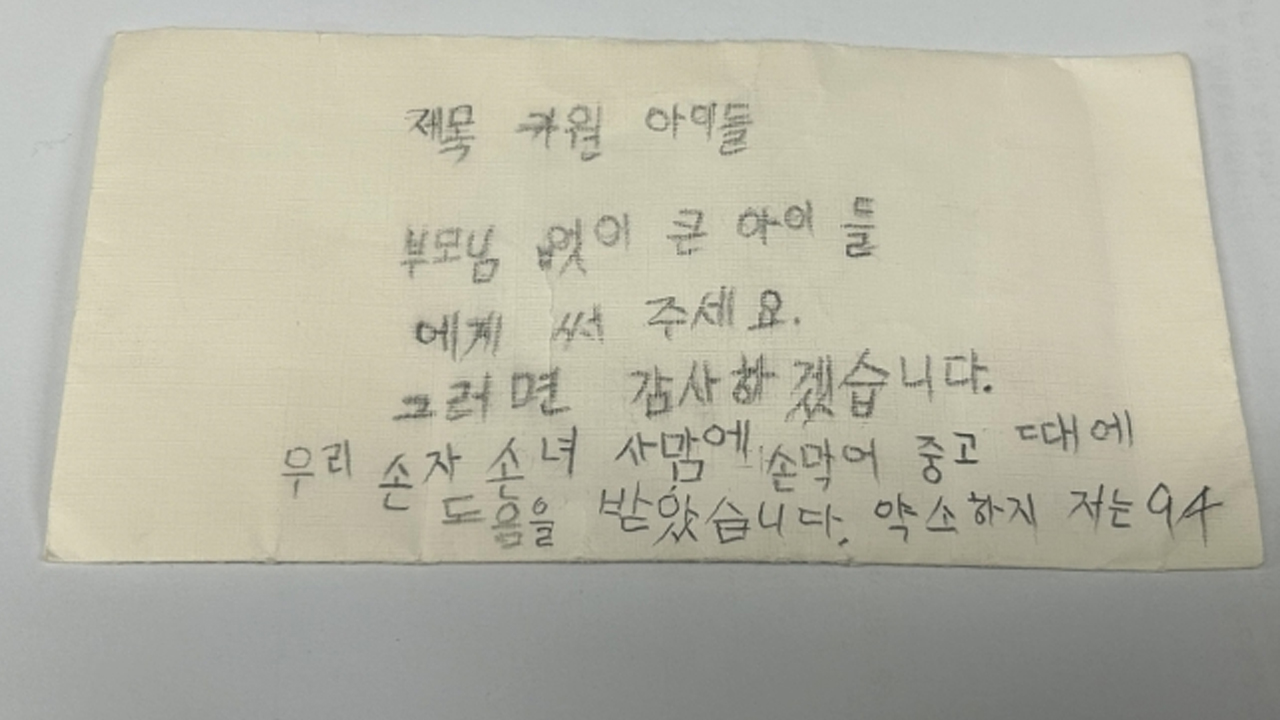 제목 카월 아이들
부모님 없이 큰 아이들
에게 써 주세요.
그러면 감사하겠습니다.
우리 손자 손녀 사맘에 손막어 중고 때에
도움을 받았습니다. 약소하지 저는 94